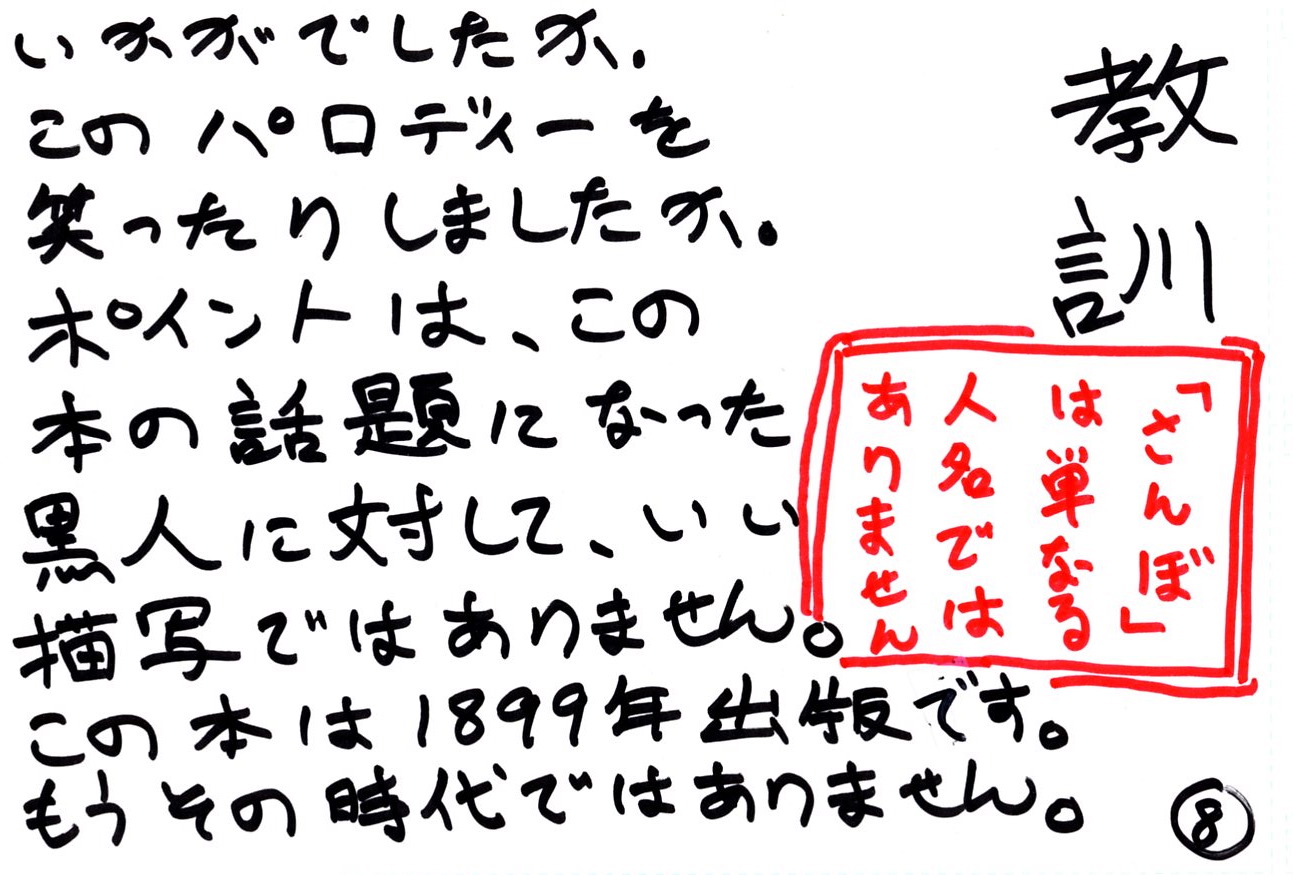 教訓
いかがでしたか.
このパロディーを
笑ったりしましたか.
ポイントは、この
本の話題になった
黒人に対して、いい
描写ではありません。
この本は1899年出版です。
もうその時代ではありません。
「さんぼ」
は単なる
人名では
ありません
8